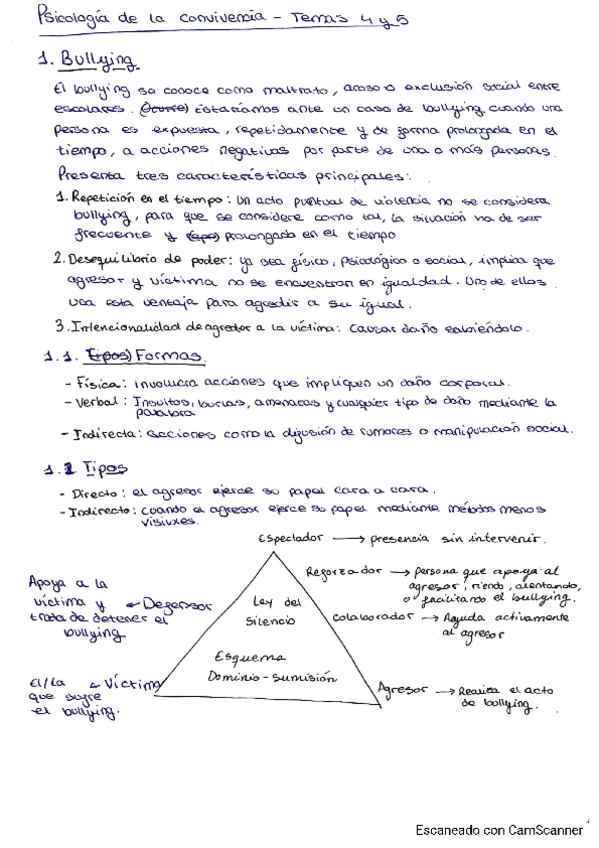 Psicología de la convivencia - Temas 4 y 5
1. Bullying.
El bullying se conoce como maltrato, acoso o exclusión social entre
escolares. (Ocurre) Estaríamos ante un caso de bullying cuando una
persona es expuesta, repetidamente y de forma prolongada en el
tiempo, a acciones negativas por parte de una o más personas.
Presenta tres características principales:
1. Repetición en el tiempo: Un acto puntual de violencia no se considera
bullying, para que se considere como tal, la situación ha de ser
frecuente y prolongado en el tiempo
2. Desequilibrio de poder: ya sea físico, psicológico o social, implica que
agresor y víctima no se encuentran en igualdad. Uno de ellos
usa esta ventaja para agredir a su igual.
3. Intencionalidad de agredor a la víctima: Causar daño sabiéndolo.
1.1. (Tipos) Formas.
- Física: involucra acciones que impliquen un daño corporal.
- Verbal: Insultos, burlas, amenazas y cualquier tipo de daño mediante la
palabra
- Indirecta: acciones como la difusión de rumores o manipulación social.
1.2 Tipos
- Directo: el agresor ejerce su papel cara a cara.
- Indirecto: cuando el agresor ejerce su papel mediante métodos menos
visibles.
Espectador → presencia sin intervenir.
Reforzador → persona que apoya al
agresor, riendo, alentando,
o facilitando el bullying.
Apoya a la
víctima y ← Defensor
trata de detener el
bullying
Ley del
silencio
Colaborador → Ayuda activamente
al agresor
Esquema
Dominio - sumisión
El/la ← Víctima
que sufre
el bullying.
Agresor → Realiza el acto
de bullying.
Escaneado con CamScanner